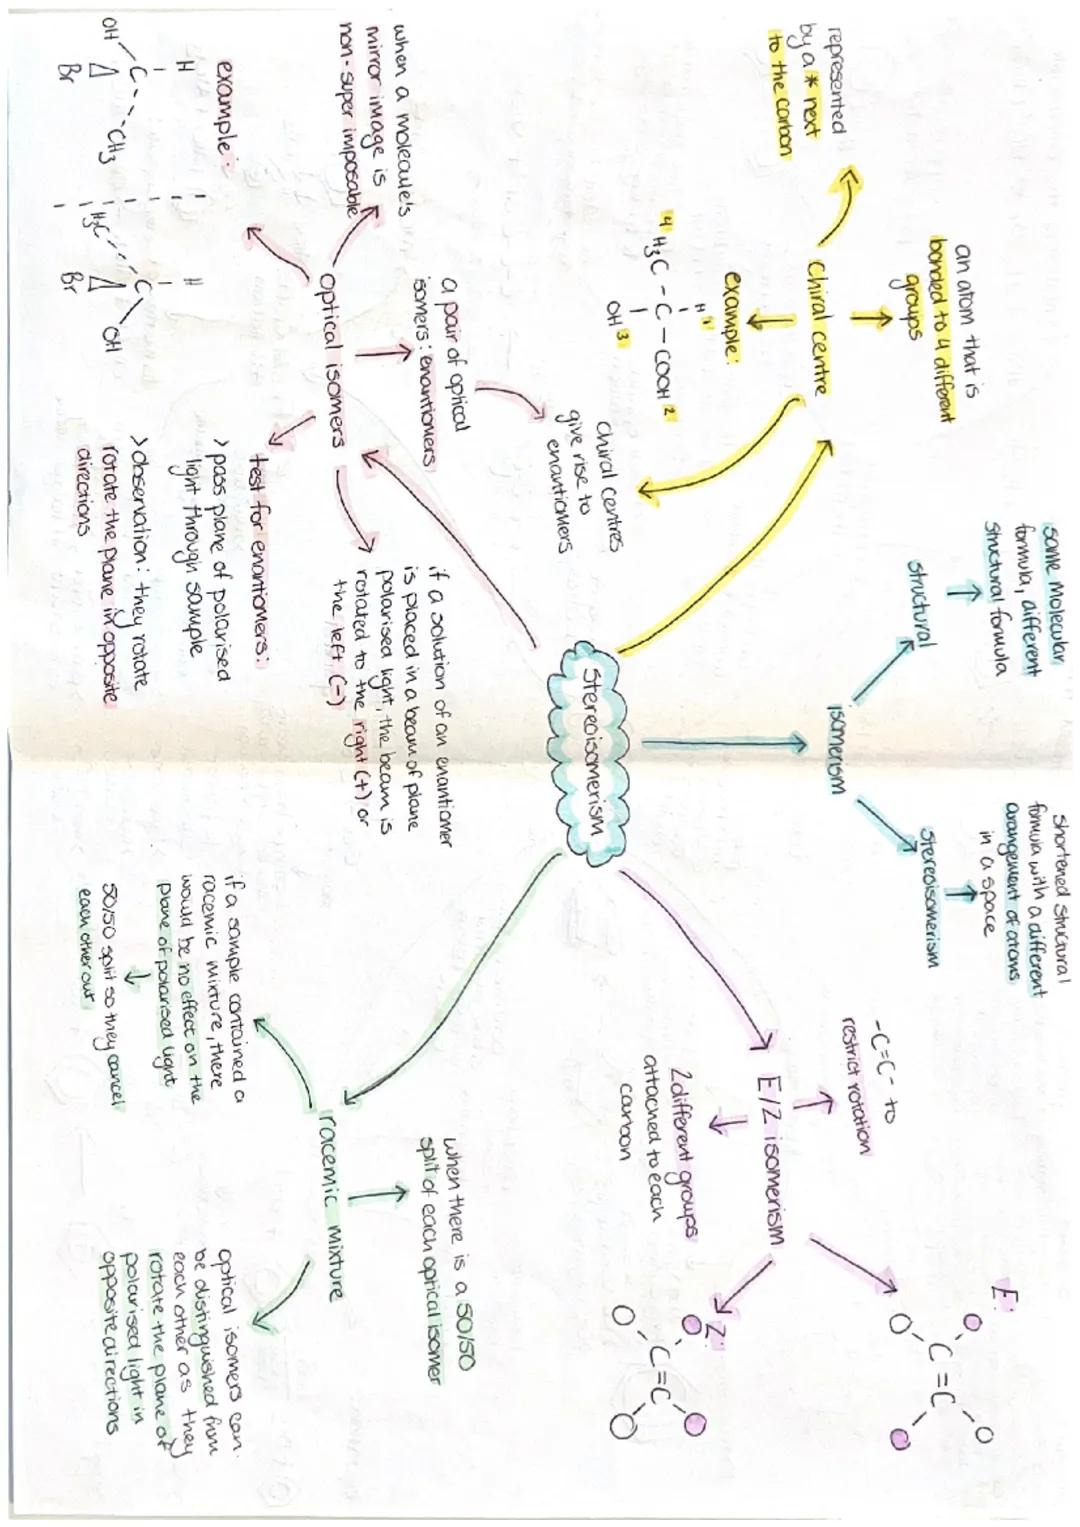 Stereoisomerism
isomerism
structural
same Molecular
formula, different
structural formula
stereoisomerism
shortened structural
formula with a different
arrangement of atoms
in a space
Chiral centre
an atom that is
bonded to 4 different
groups
represented
by a * next
to the carbon
example:
H 1
4 H3C - C - COOH 2
OH 3
chiral centres
give rise to
enantiomers
optical isomers
a pair of optical
isomers: enantiomers
when a molecule's
mirror image is
non-super imposable
example:
H
OH C CH3
Br
H
H3C C OH
Br
test for enantiomers:
> pass plane of polarised
light through sample
> observation: they rotate
rotate the plane in opposite
directions
if a solution of an enantiomer
is placed in a beam of plane
polarised light, the beam is
rotated to the right (+) or
the left (-)
E/Z isomerism
-C=C- to
restrict rotation
2 different groups
attached to each
carbon
E:
C=C
Z:
C=C
racemic mixture
when there is a 50/50
split of each optical isomer
if a sample contained a
racemic mixture, there
would be no effect on the
plane of polarised light
50/50 split so they cancel
each other out
optical isomers can
be distinguished from
each other as they
rotate the plane of
polarised light in
opposite directions